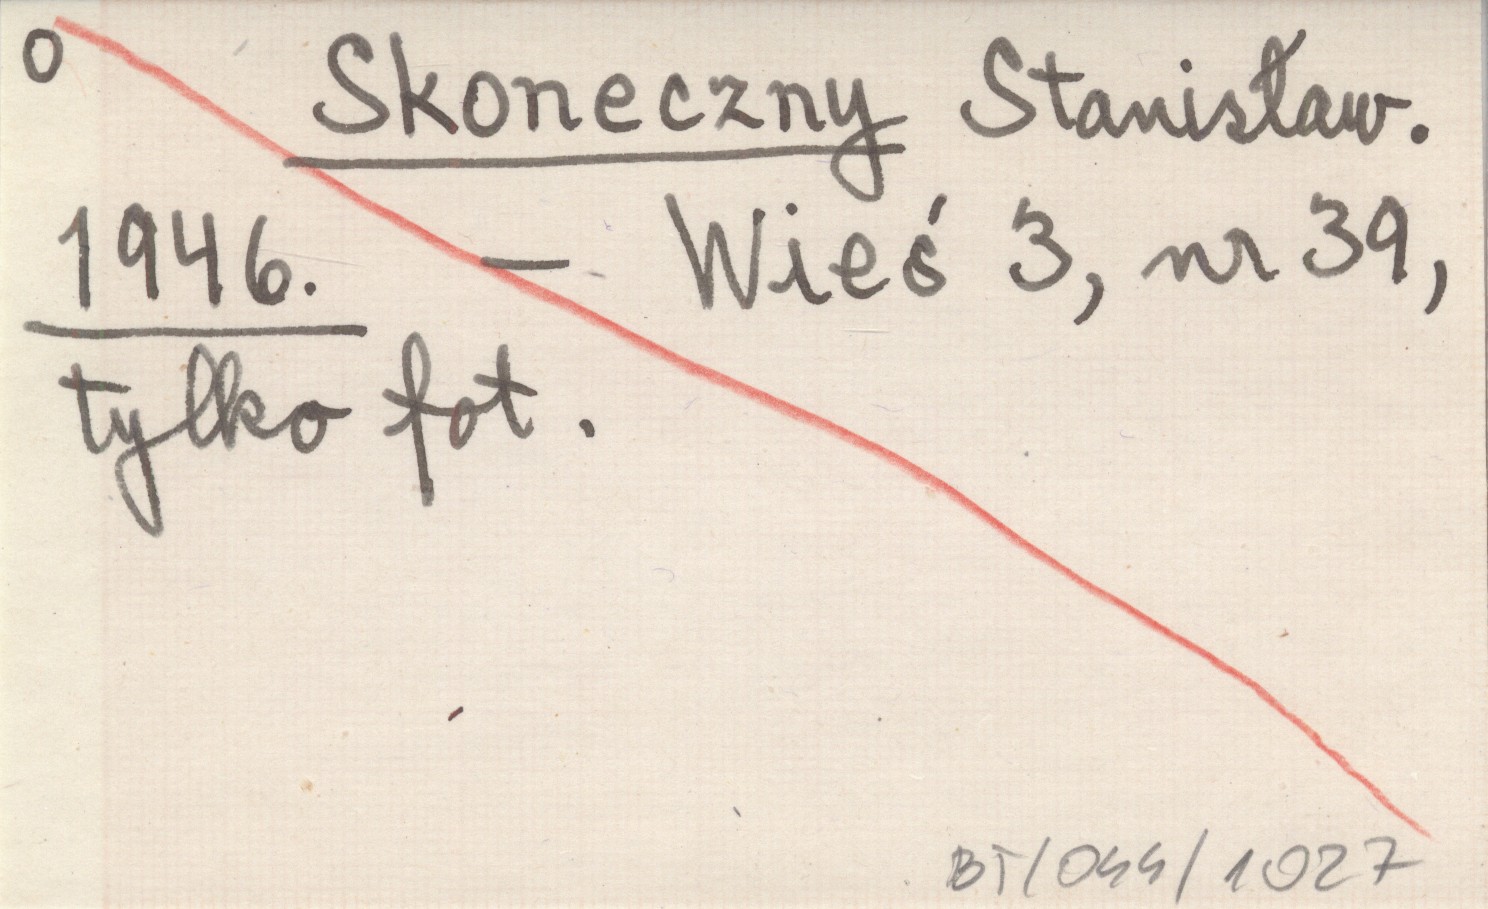 o Skoneczny Stanisław.
1946. — Wieś 3, nr 39,
tylko fot.
BT/044/1027